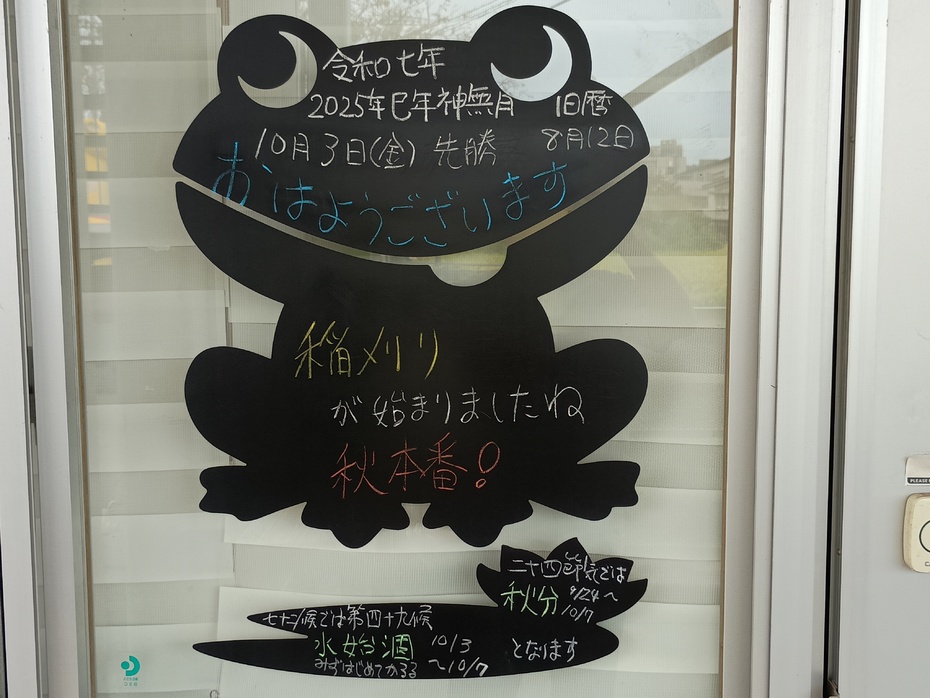 令和七年
2025年巳年神無月 旧暦
10月3日(金) 先勝 8月12日
おはようございます
稲刈り
が始まりましたね
秋本番!
二十四節気では
秋分 9/24～
10/7
となります
七十二候では第四十九候
水始涸 10/3
みずはじめてかるる ～10/7
PLEASE